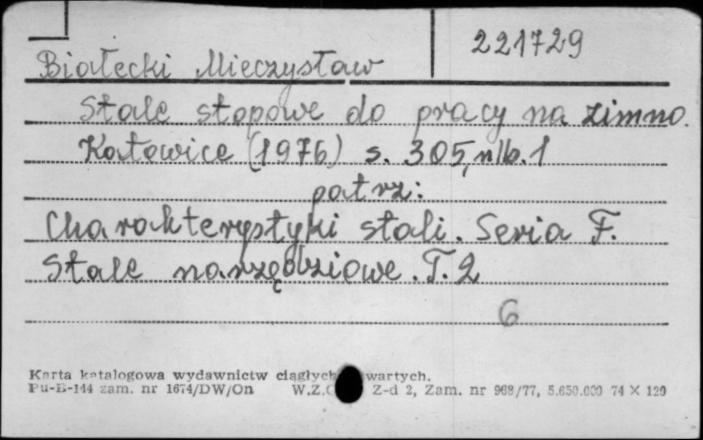 221729
Białecki Mieczysław
Stale stopowe do pracy na zimno.
Katowice (1976) s. 305, nlb. 1
patrz:
Charakterystyki stali. Seria F.
Stale narzędziowe. T. 2
6
Karta katalogowa wydawnictw ciągłych wartych.
Pu-B-144 zam. nr 1674/DW/On W.Z. Z-d 2, Zam. nr 968/77, 5.650.000 74 X 120